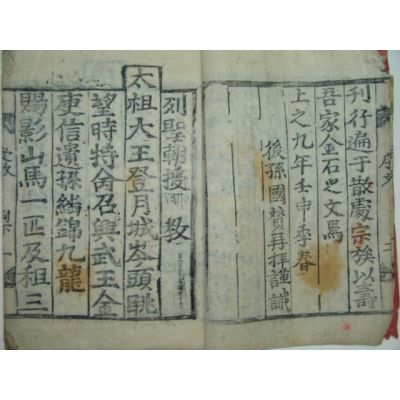 序文 二
刊行遍于散處宗族以壽
吾家金石之文焉
上之九年壬申季春
後孫國賛再拜謹識
列聖朝授教
太祖大王登月城岑頭眺
望時特命召興武王金
庾信遺孫錦九龍
賜影山馬一匹及租三